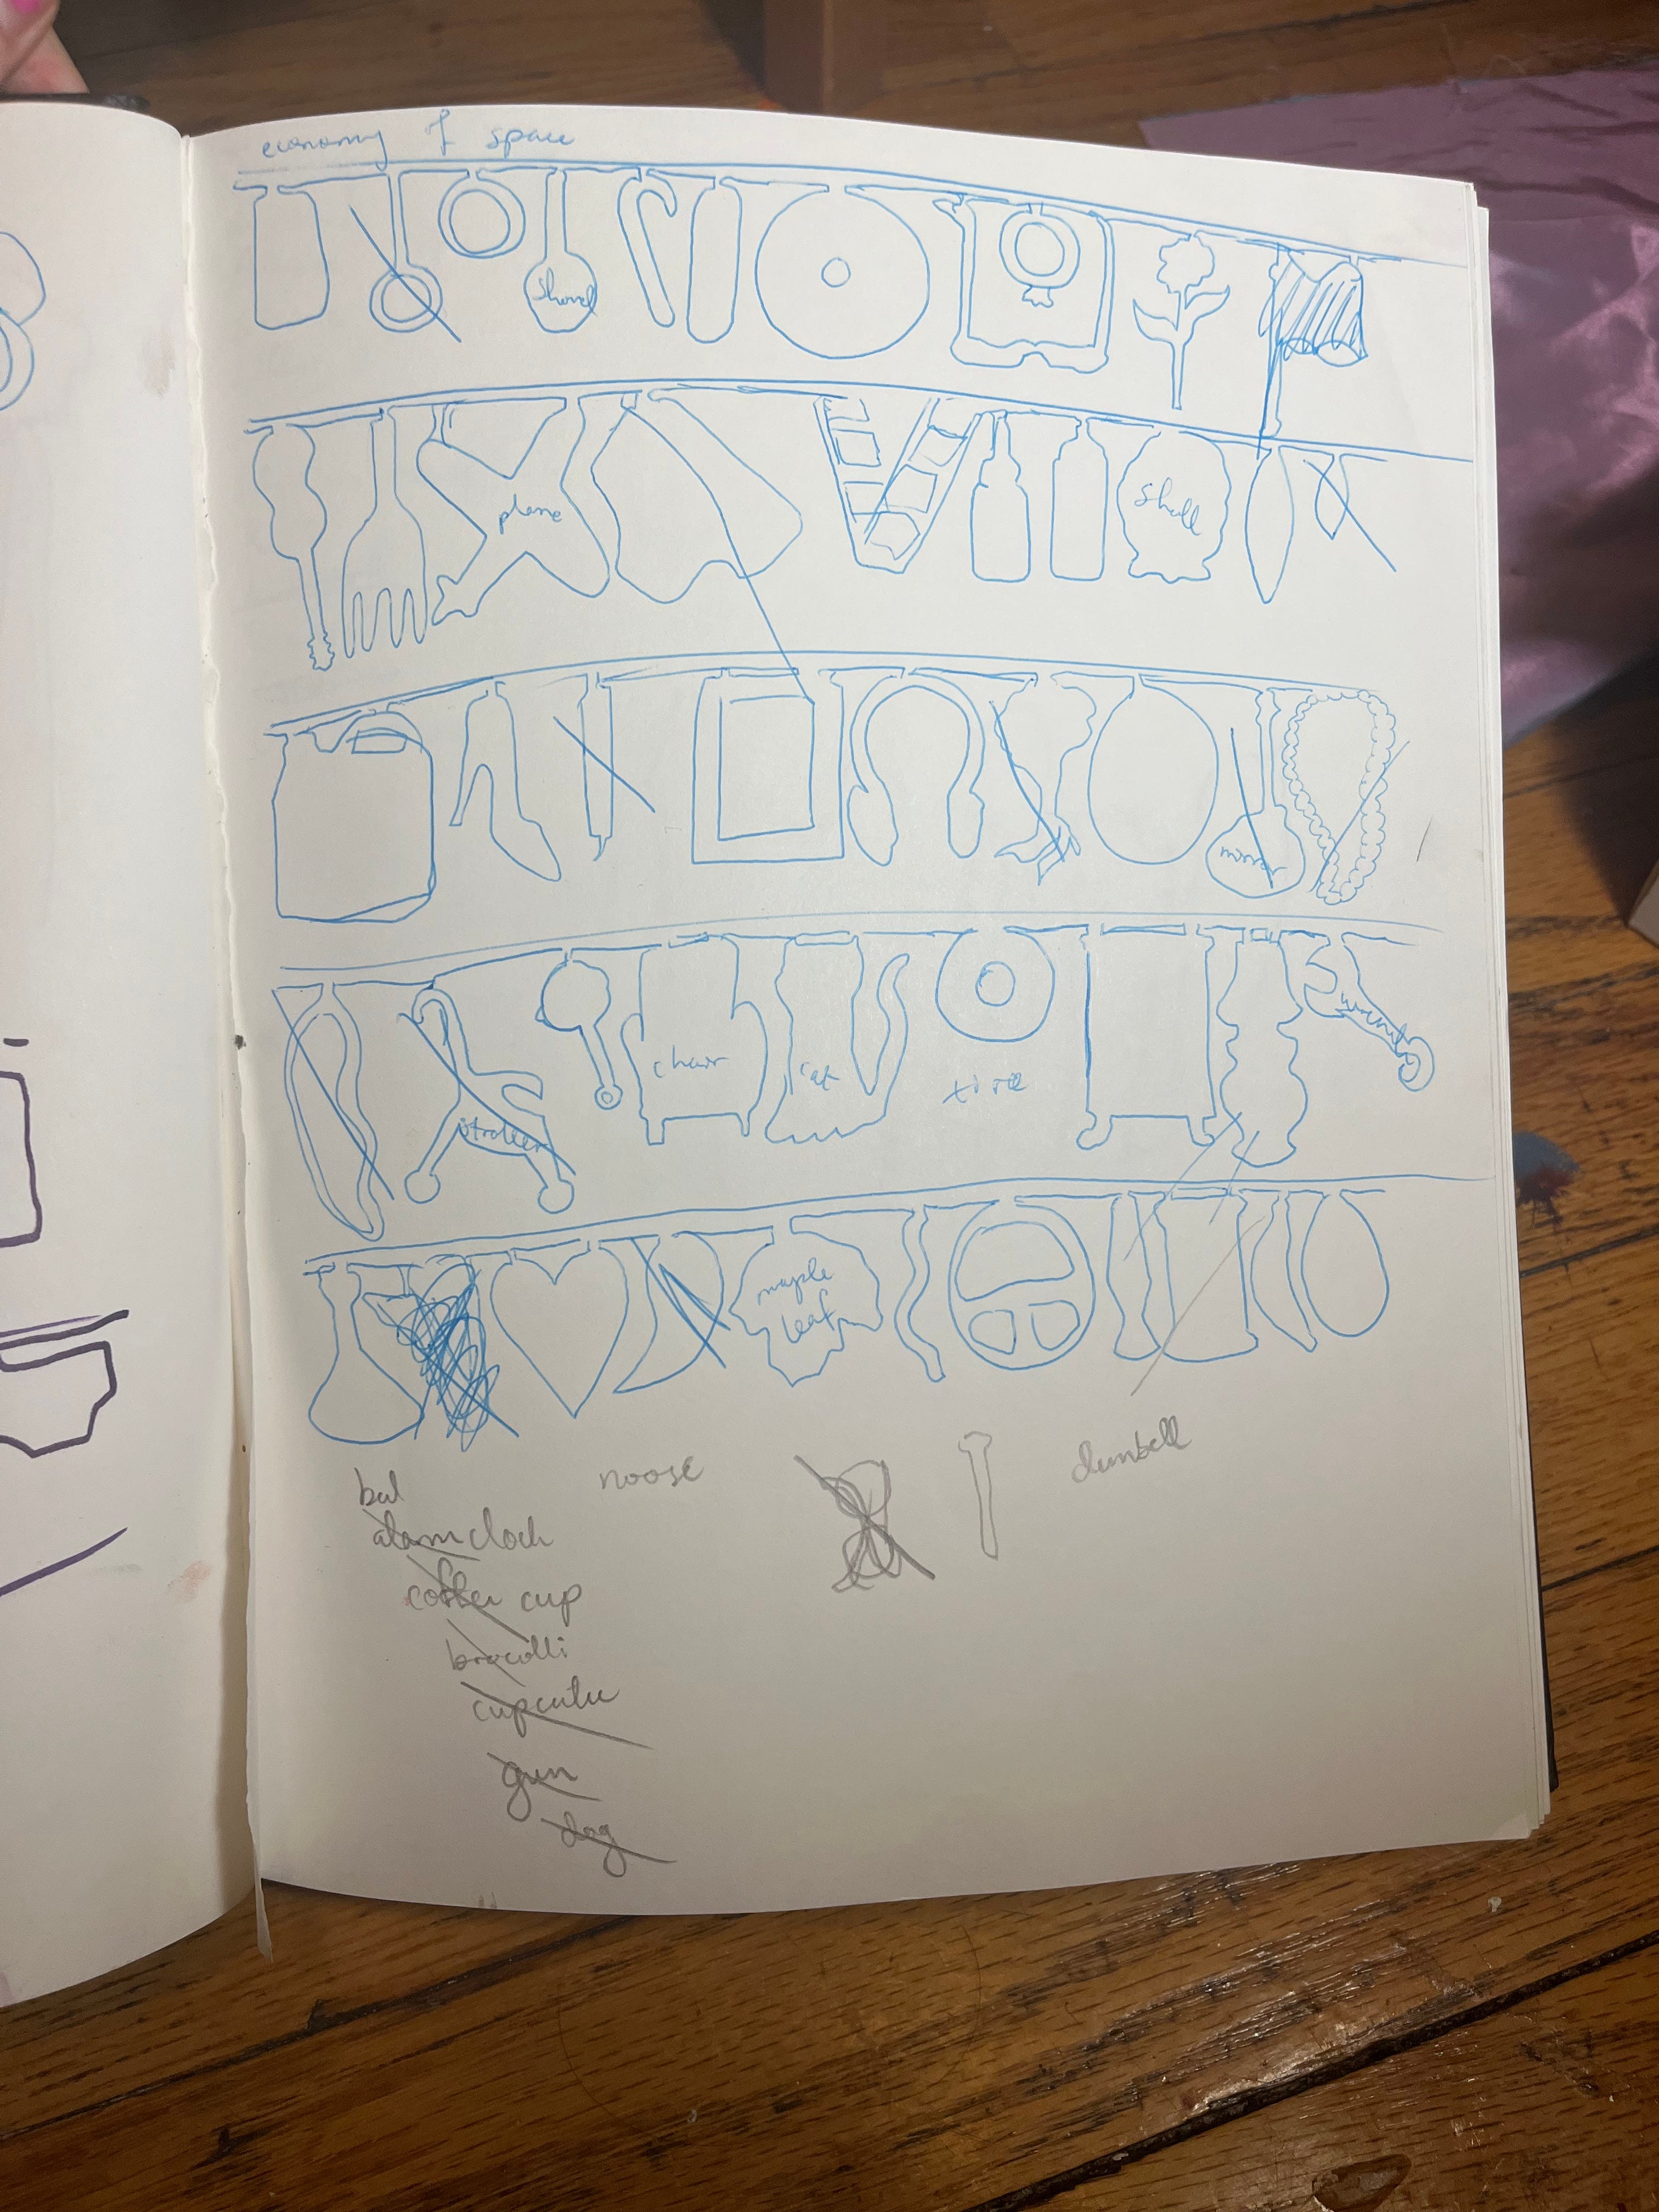 economy of space
shovel
plane
shell
mirror
stroller
chair
cat
tire
maple
leaf
noose
dumbell
alarm clock
coffee cup
brocolli
cupcake
gun
dog